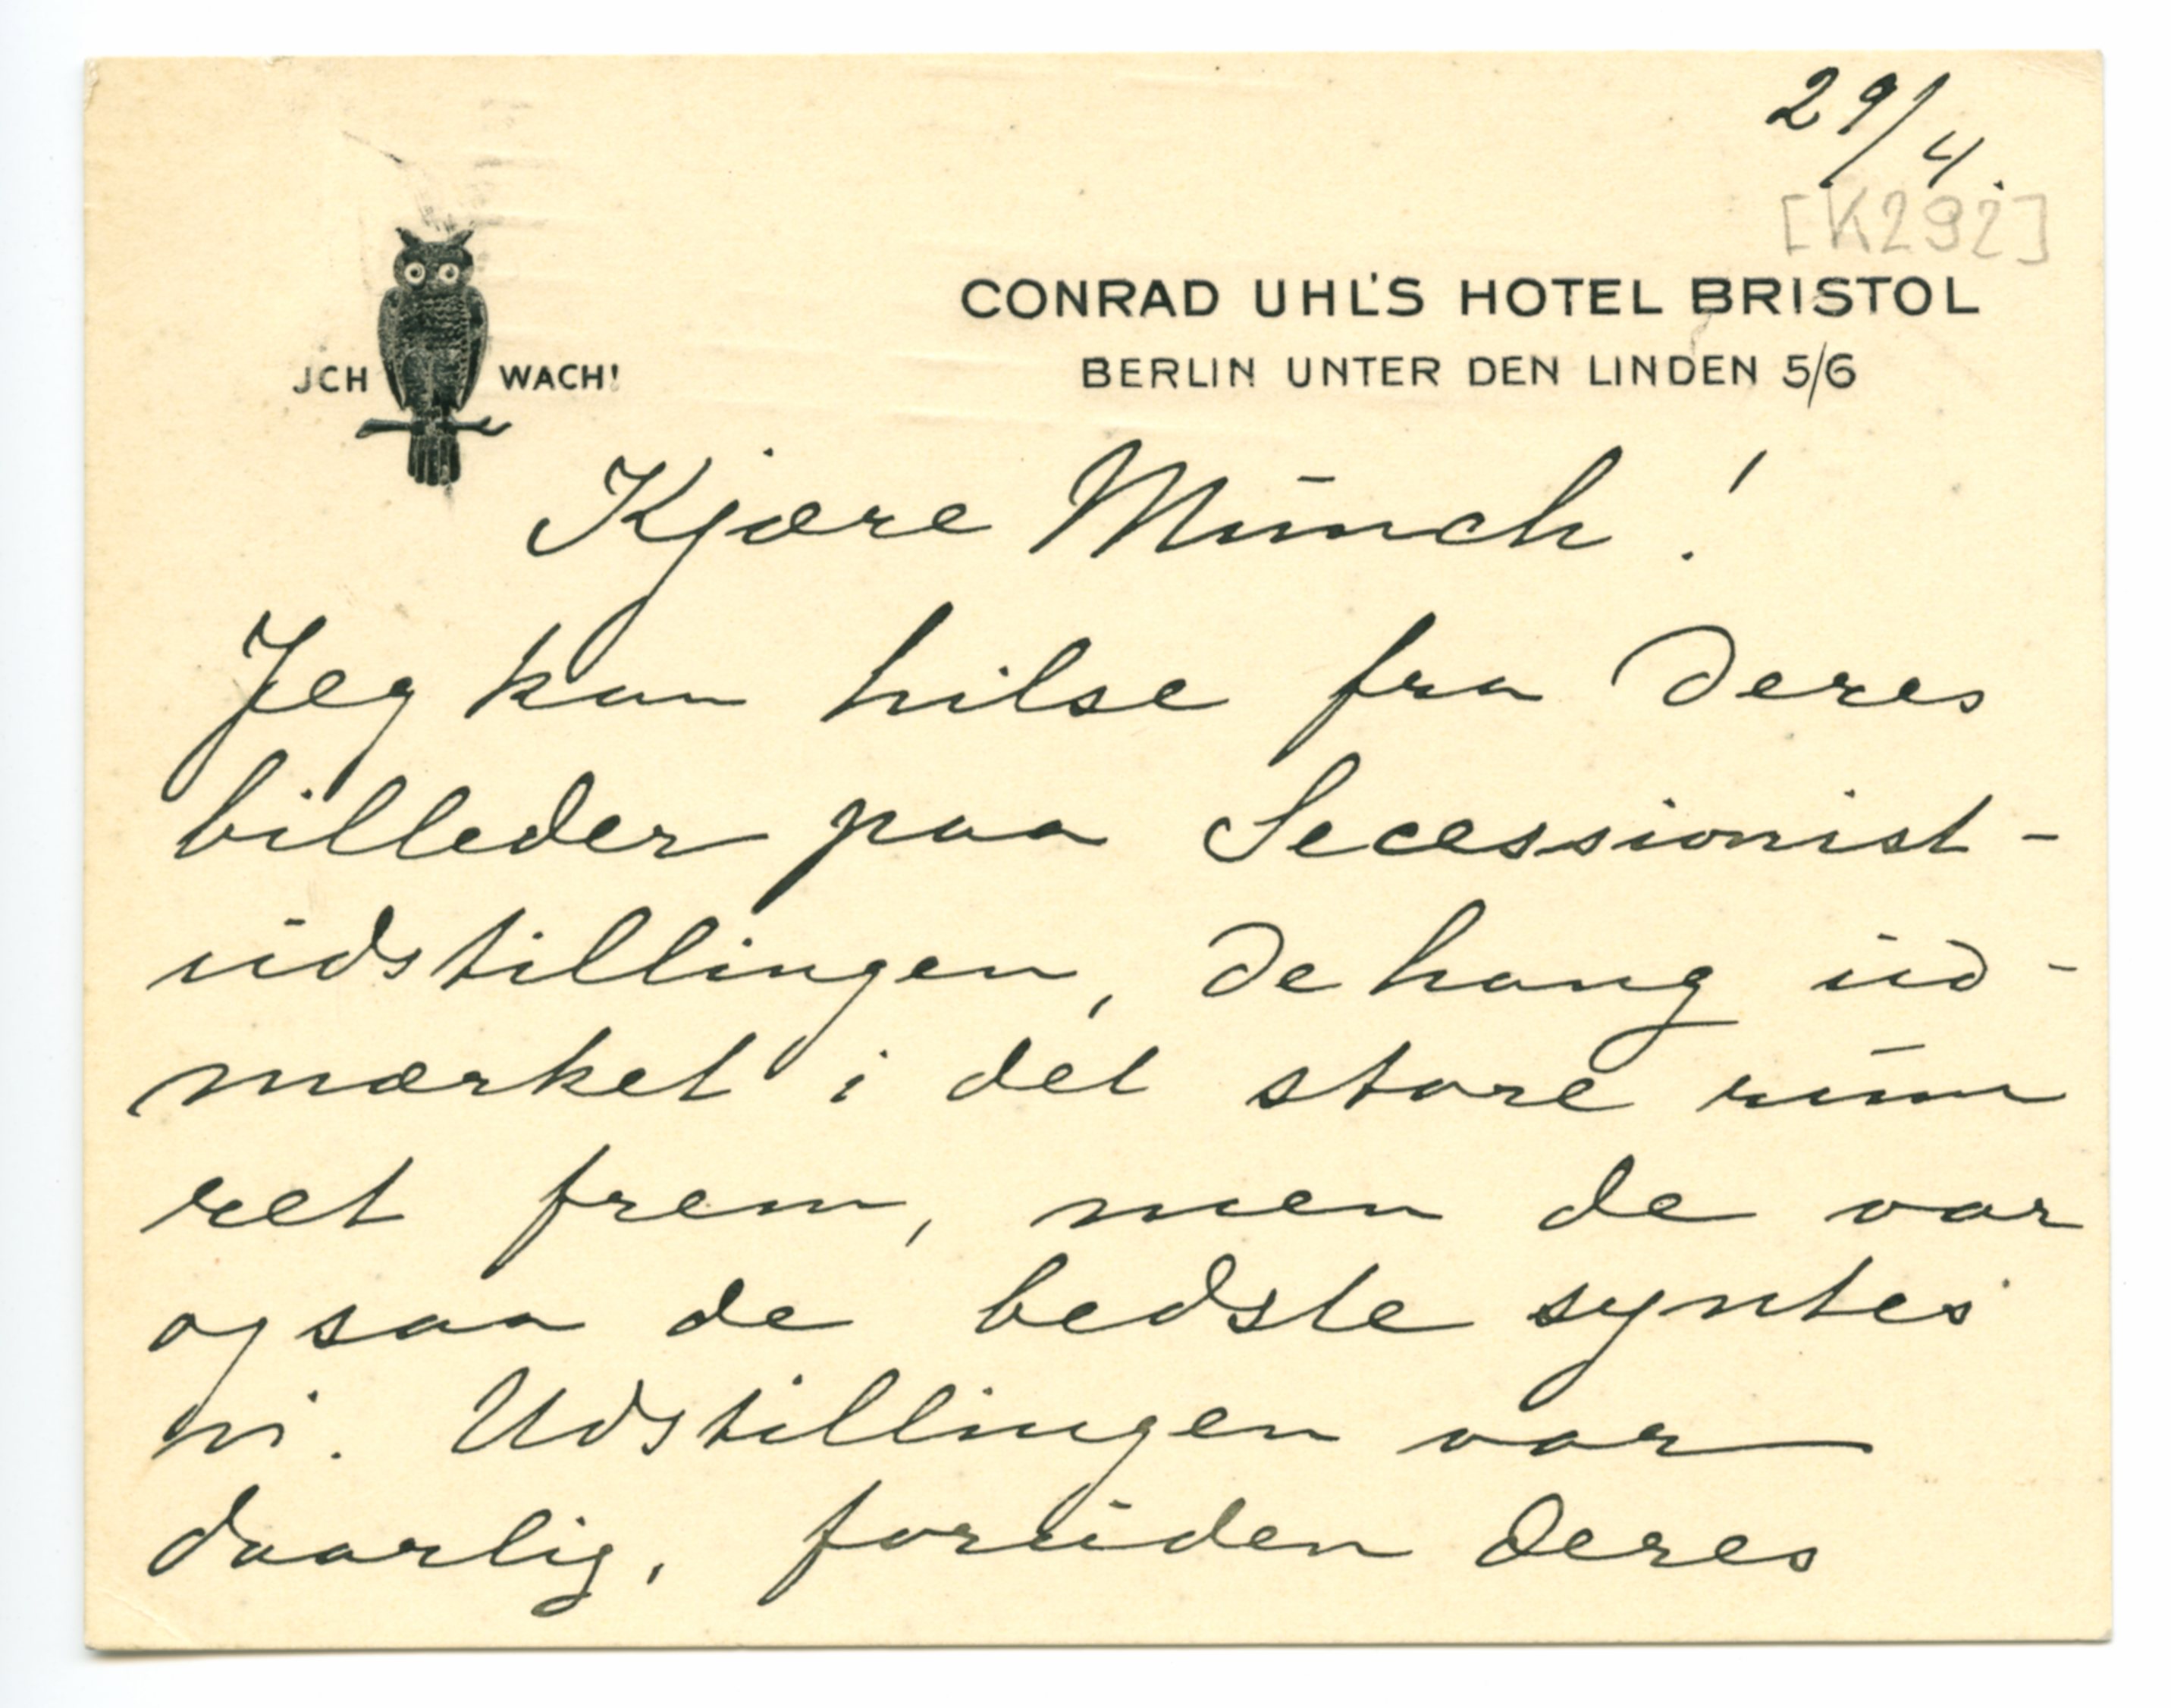 29/4.
[K292]
CONRAD UHL'S HOTEL BRISTOL
JCH WACH!
BERLIN UNTER DEN LINDEN 5/6
Kjære Munch!
Jeg kan hilse fra Deres
billeder paa Secessionist-
udstillingen, De hang ud-
mærket i det store rum
ret frem, men de var
ogsaa de bedste syntes
vi. Udstillingen var
daarlig, foruden Deres